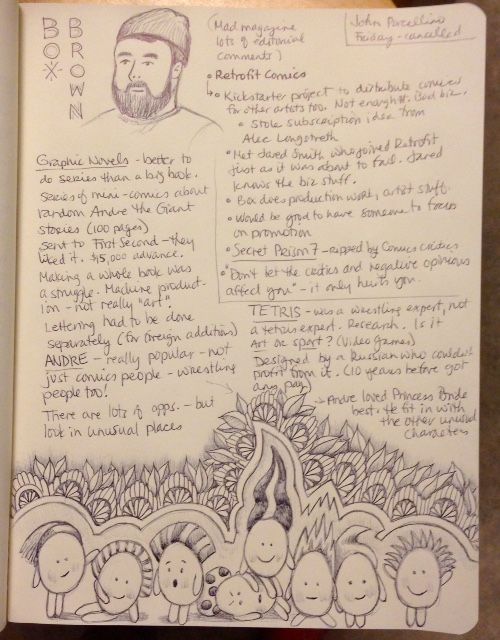 BOX
BROWN
(Mad magazine
lots of editorial
comments)
John Porcellino
Friday - cancelled
• Retrofit Comics
Kickstarter project to distribute comics
for other artists too. Not enough $. Bad biz.
• Stole subscription idea from
Alec Longstreth
• Met Jared Smith who joined Retrofit
just as it was about to fail. Jared
knows the biz stuff.
• Box does production work, artist stuff.
• Would be good to have someone to focus
on promotion
• Secret Prism 7 - ripped by Comics critics
• "Don't let the critics and negative opinions
affect you" - it only hurts you.
Graphic Novels - better to
do series than a big book.
Series of mini-comics about
random Andre the Giant
stories (100 pages)
sent to First Second - they
liked it. $5,000 advance.
Making a whole book was
a struggle. Machine product-
ion - not really "art".
Lettering had to be done
separately (for foreign addition)
ANDRE - really popular - not
just comics people - wrestling
people too!
There are lots of opps. - but
look in unusual places
TETRIS - was a wrestling expert, not
a tetris expert. Research. Is it
Art or sport? (Video Games)
Designed by a Russian who couldn't
profit from it. (10 years before got
any pay)
Andre loved Princess Bride
best. He fit in with
the other unusual
characters